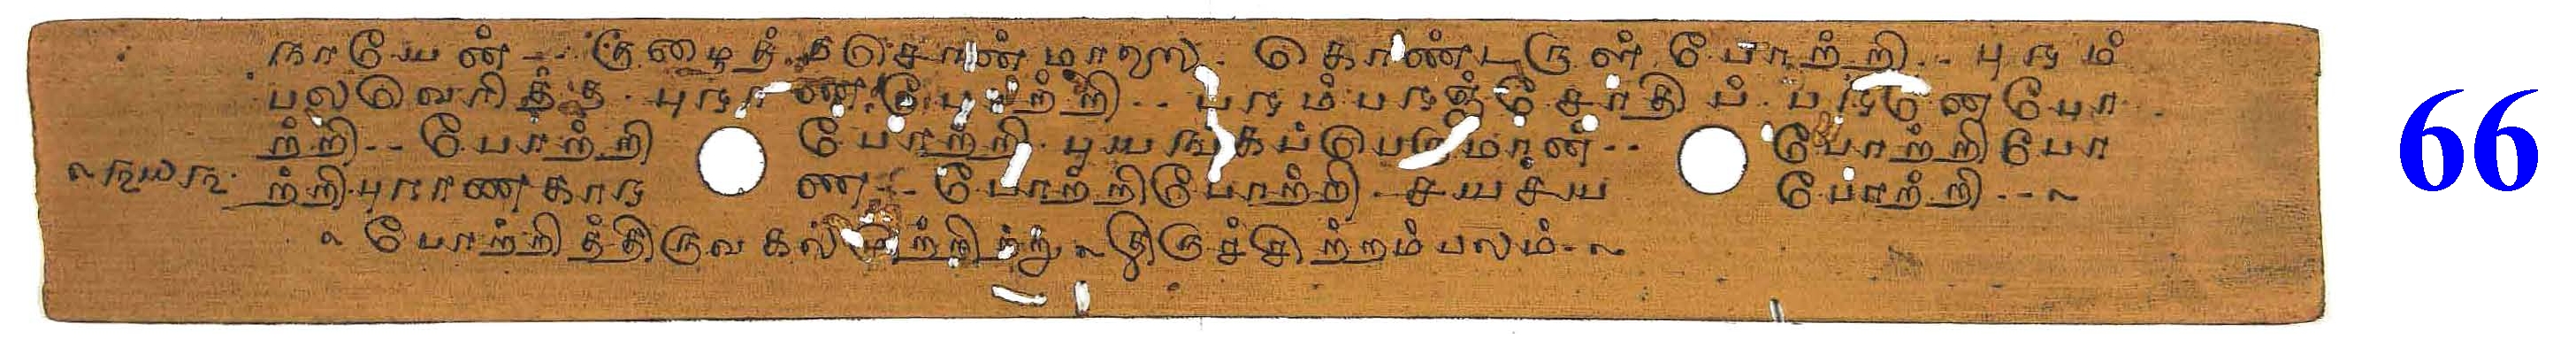 நாயேன் - குழைத்த சொன்மாலை - கொண்டருள் போற்றி - - புரம்
பலவெரித்த - புராண போற்றி - - பரம்பரஞ்சோதிப் பரனே போ
ற்றி - - போற்றி போற்றி - புயங்கப்பெருமான் - - போற்றி போ
ற்றி புராணகாரண - - போற்றி போற்றி - சயசய போற்றி - -
போற்றித்திருவகல் முற்றிற்று திருச்சிற்றம்பலம் -
66